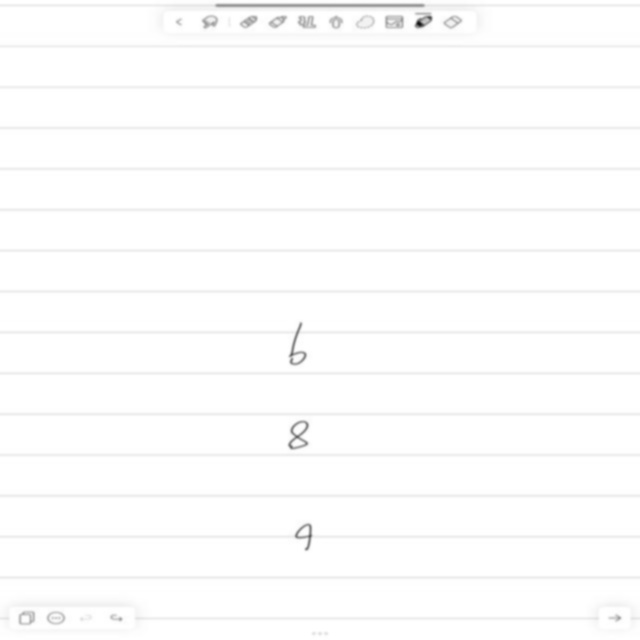 6
8
9